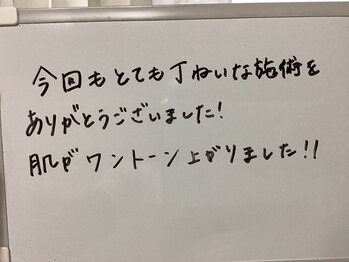 今回もとても丁ねいな施術を
ありがとうございました!
肌がワントーン上がりました!!